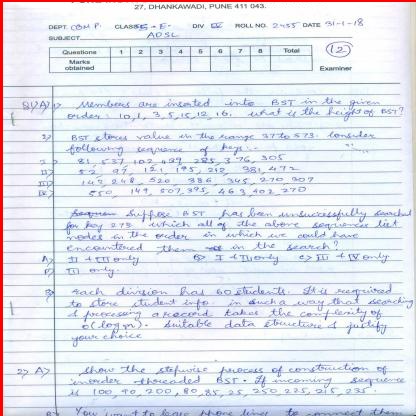 27, DHANKAWADI, PUNE 411 043.
DEPT. COMP. CLASS E. DIV IV ROLL NO. 2455 DATE 31-1-18
SUBJECT ADSL
Questions 1 2 3 4 5 6 7 8 Total
Marks obtained
12
Examiner
Q1)A) 1) Members are inserted into BST in the given
order: 10, 1, 3, 5, 15, 12, 16. what is the height of BST?
2) BST stores value in the range 37 to 573. Consider
following sequence of keys:-
I) 81, 537, 102, 439, 285, 376, 305
II) 52, 97, 121, 195, 242, 381, 472
III) 142, 248, 520, 386, 345, 270, 307
IV) 550, 149, 507, 395, 463, 402, 270
Suppose BST has been unsuccessfully searched
for key 273. which all of the above sequences list
nodes in the order in which we could have
encountered them in the search?
A) II + III only B) I + III only c) III + IV only
D) III only.
B) Each division has 60 students. It is required
to store student info. in such a way that searching
& processing a record takes the complexity of
O(log n). Suitable data structure & justify
your choice
2) A) Show the stepwise process of construction of
inorder threaded BST. If incoming sequence
is 100, 90, 200, 80, 85, 25, 250, 225, 215, 235.
B) You want to lease phone lines to connect them